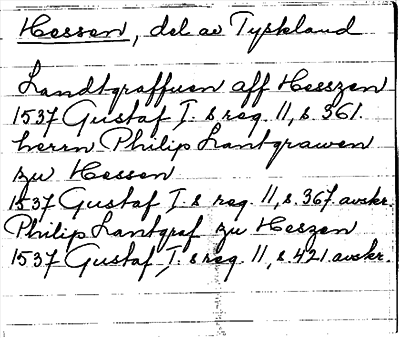 Hessen, del av Tyskland
Landtgraffuen aff Hesszen
1537 Gustaf I:s reg. 11, s. 361.
herrn Philip Lantgrawen
zu Hessen
1537 Gustaf I:s reg. 11, s. 367. avskr.
Philip Lantgraf zu Heszen
1537 Gustaf I:s reg. 11, s. 421. avskr.